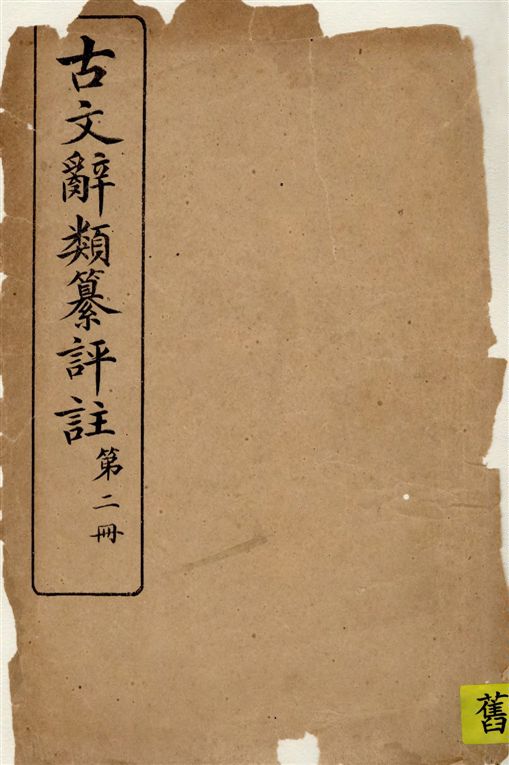 古文辭類纂評註
第二冊
舊